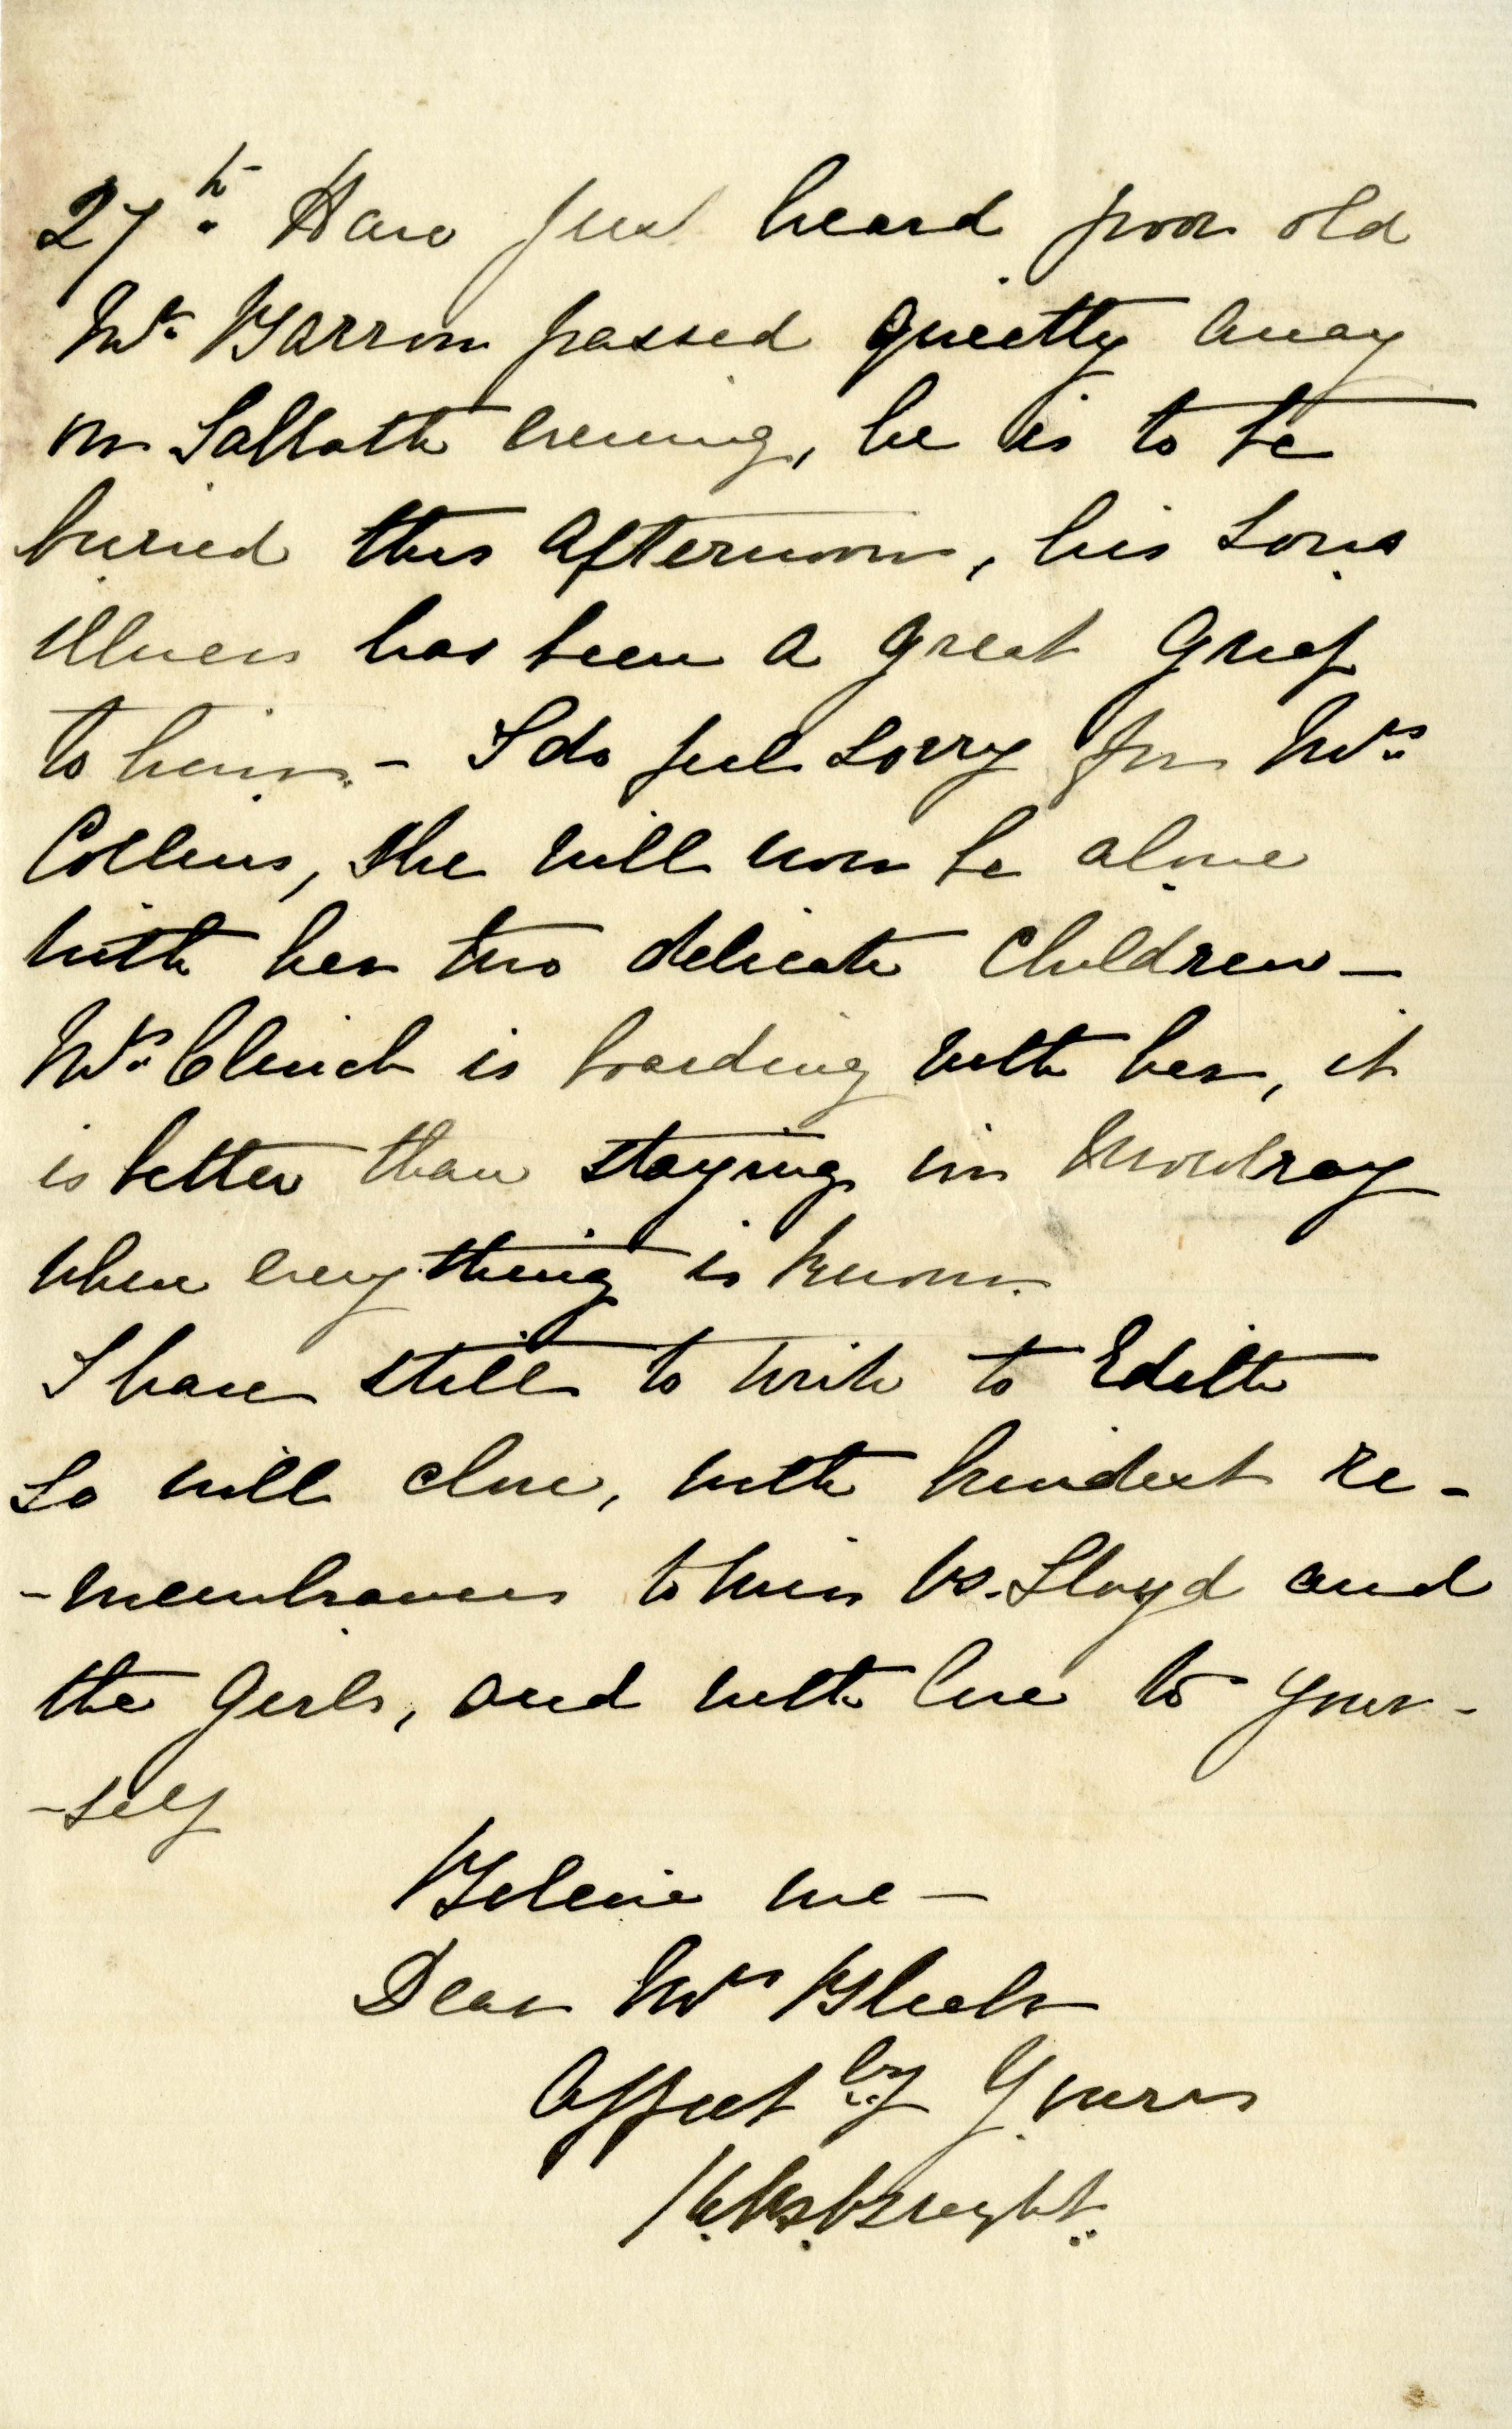 27th. Have just heard poor old
Mr. Barron passed quietly away
on Sabbath evening, he is to be
buried this afternoon, his sons
illness has been a great grief
to him. - I do feel sorry for Mrs.
Collins, she will now be alone
with her two delicate children -
Mrs. Clinch is boarding with her, it
is better than staying in Mowbray
when everything is known.
I have still to write to Edith
so will close, with kindest re-
-membrances to Miss Lloyd and
the girls, and with love to your-
-self
Believe me -
Dear Mrs Bleek
Affectly Yours
Wright.